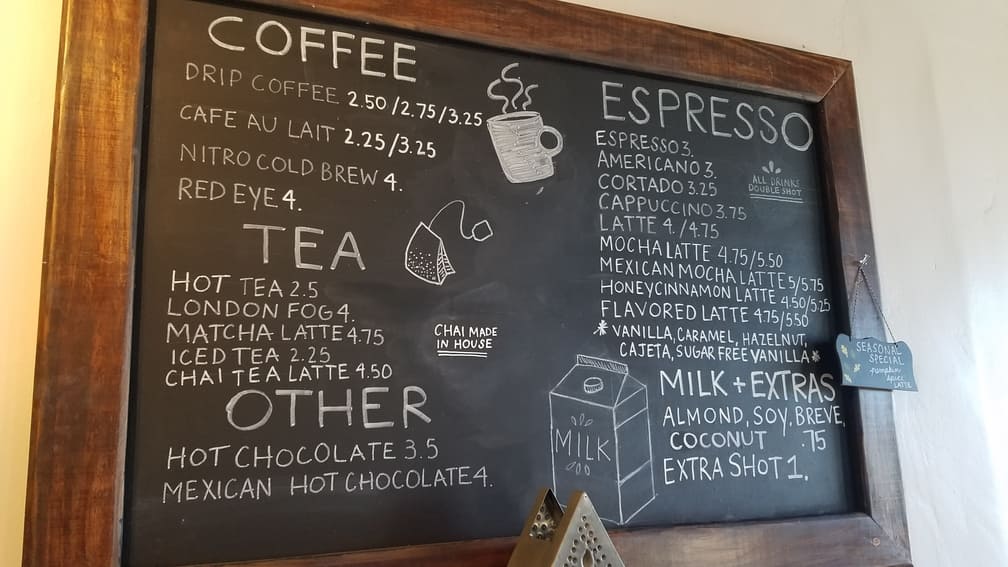 COFFEE
DRIP COFFEE 2.50/2.75/3.25
CAFE AU LAIT 2.25/3.25
NITRO COLD BREW 4.
RED EYE 4.
TEA
HOT TEA 2.5
LONDON FOG 4.
MATCHA LATTE 4.75
ICED TEA 2.25
CHAI TEA LATTE 4.50
CHAI MADE
IN HOUSE
OTHER
HOT CHOCOLATE 3.5
MEXICAN HOT CHOCOLATE 4.
ESPRESSO
ESPRESSO 3.
AMERICANO 3.
CORTADO 3.25
CAPPUCCINO 3.75
LATTE 4./4.75
MOCHA LATTE 4.75/5.50
MEXICAN MOCHA LATTE 5/5.75
HONEYCINNAMON LATTE 4.50/5.25
FLAVORED LATTE 4.75/5.50
*VANILLA, CARAMEL, HAZELNUT,
CAJETA, SUGAR FREE VANILLA*
ALL DRINKS
DOUBLE SHOT
MILK
MILK + EXTRAS
ALMOND, SOY, BREVE,
COCONUT .75
EXTRA SHOT 1.
SEASONAL
SPECIAL
pumpkin
spice
LATTE